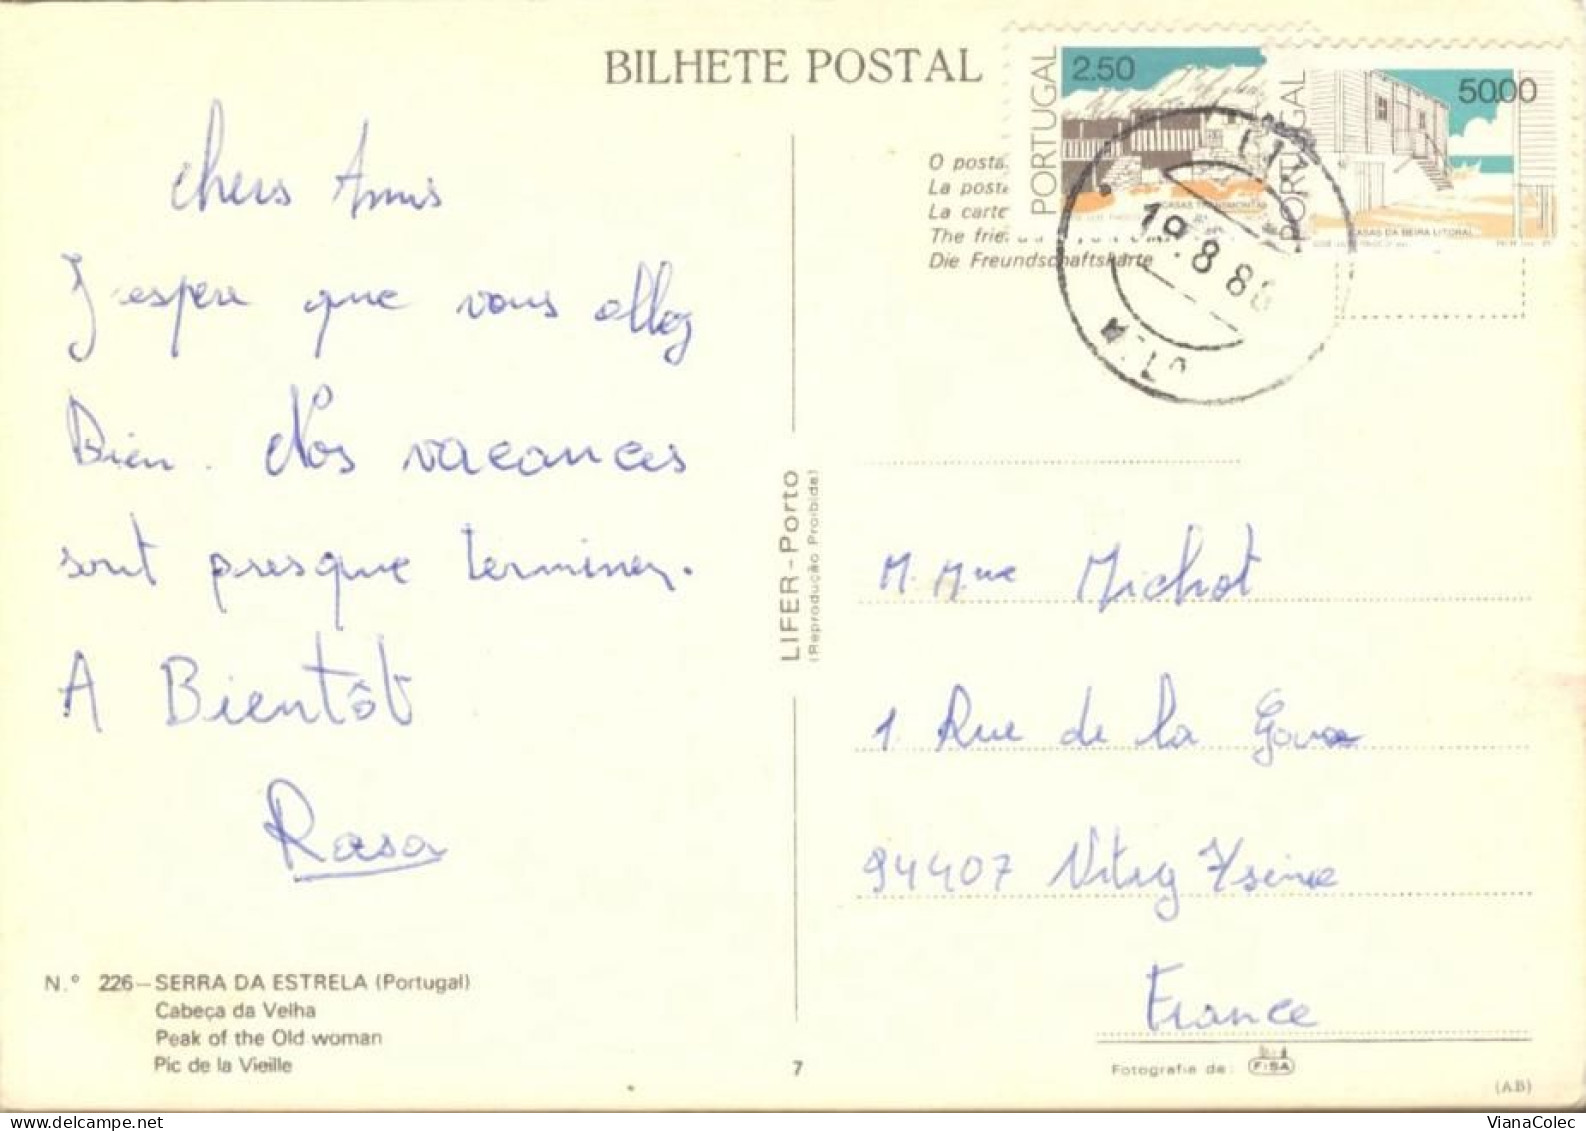 BILHETE POSTAL
chers Amis
J'espere que vous allez
Bien. Nos vacances
sont presque terminez.
A Bientôt
Rosa
N.º 226 — SERRA DA ESTRELA (Portugal)
Cabeça da Velha
Peak of the Old woman
Pic de la Vieille
LIFER - Porto
(Reprodução Proibida)
7
PORTUGAL
2.50
PORTUGAL
50.00
CASAS DA BEIRA LITORAL
19.8.88
O posta
La post
La carte
The frie
Die Freundschaftskarte
M. Mme Michot
1 Rue de la
94407 Vitry S/seine
France
Fotografia de: FISA
(AB)
VianaColec